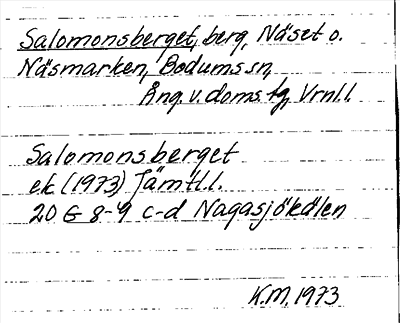 Salomonsberget, berg, Näset o.
Näsmarken, Bodums sn,
Ång. v. doms tg, Vrnl.l.
Salomonsberget
ek (1973) Jämtl.l.
20 G 8-9 c-d Nagasjökölen
K.M. 1973